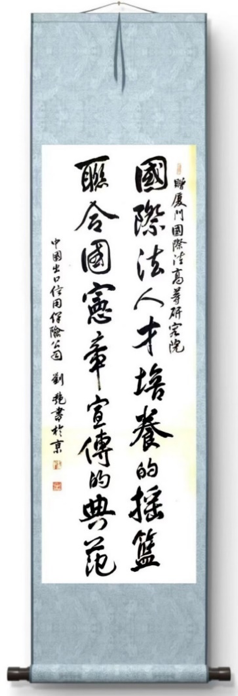 贈廈門國際法高等研究院
國際法人才培養的摇籃
聯合國憲章宣傳的典范
中國出口信用保險公司 劉艳書於京